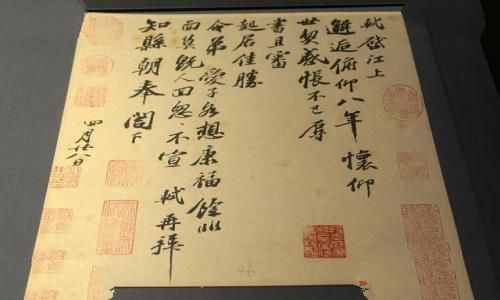 軾啓江上
邂逅俯仰八年懷仰
世契感悵不已辱
書且審
起居佳勝
令弟愛子各想康福餘非
面莫既人回怱〻不宣軾再拜
知縣朝奉閣下
四月廿八日
46